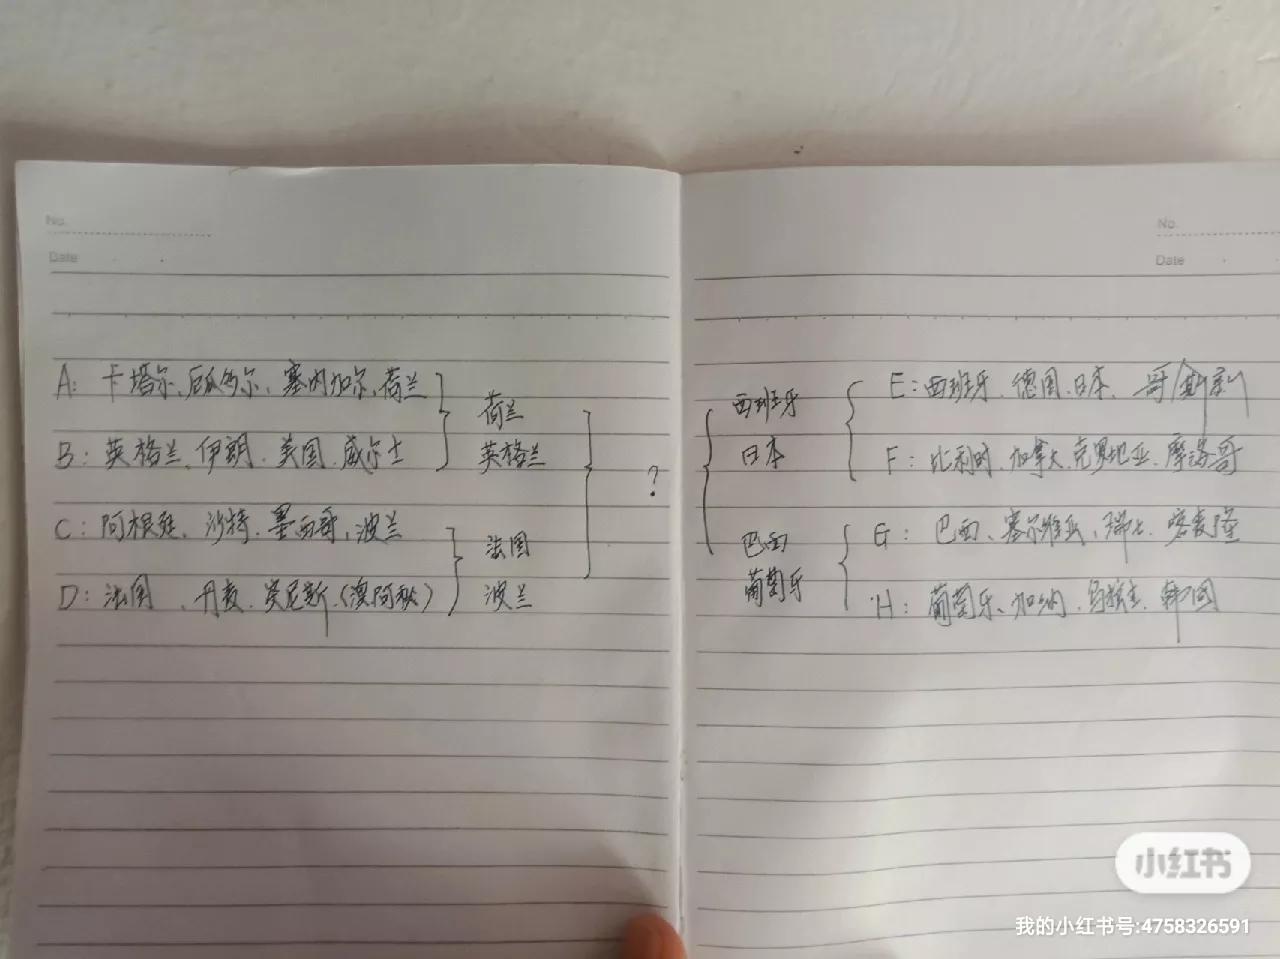 No.
Date
A: 卡塔尔、厄瓜多尔、塞内加尔、荷兰
B: 英格兰、伊朗、美国、威尔士
C: 阿根廷、沙特、墨西哥、波兰
D: 法国、丹麦、突尼斯、(澳阿秘)
荷兰
英格兰
法国
波兰
?
No.
Date
西班牙
日本
巴西
葡萄牙
E: 西班牙、德国、日本、哥/新
F: 比利时、加拿大、克罗地亚、摩洛哥
G: 巴西、塞尔维亚、瑞士、喀麦隆
H: 葡萄牙、加纳、乌拉圭、韩国
小红书
我的小红书号:4758326591